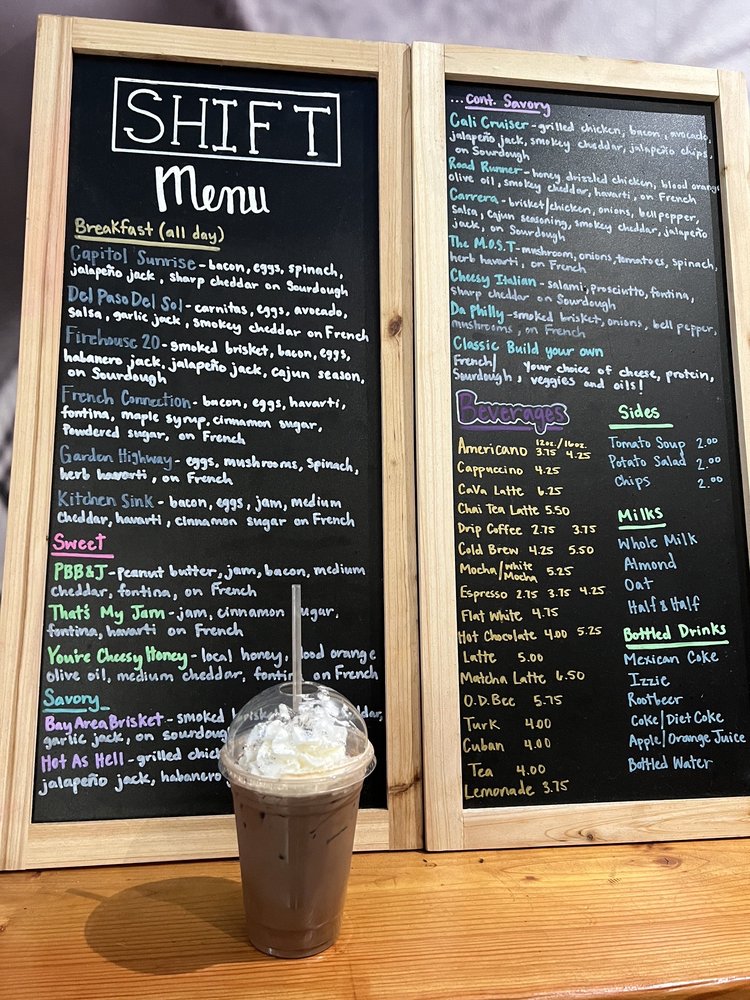 SHIFT
Menu
Breakfast (all day)
Capitol Sunrise - bacon, eggs, spinach,
jalapeño jack, sharp cheddar on Sourdough
Del Paso Del Sol - carnitas, eggs, avocado,
salsa, garlic jack, smokey cheddar on French
Firehouse 20 - smoked brisket, bacon, eggs,
habanero jack, jalapeño jack, cajun season,
on Sourdough
French Connection - bacon, eggs, havarti,
fontina, maple syrup, cinnamon sugar,
Powdered sugar, on French
Garden Highway - eggs, mushrooms, spinach,
herb havarti, on French
Kitchen Sink - bacon, eggs, jam, medium
cheddar, havarti, cinnamon sugar on French
Sweet
PBB&J - peanut butter, jam, bacon, medium
cheddar, fontina, on French
That's My Jam - jam, cinnamon sugar,
fontina, havarti on French
You're Cheesy Honey - local honey, blood orange
olive oil, medium cheddar, fontina on French
Savory
Bay Area Brisket - smoked
garlic jack, on sourdough
Hot As Hell - grilled
jalapeño jack, habanero
...cont. Savory
Cali Cruiser - grilled chicken, bacon, avocado,
jalapeño jack, smokey cheddar, jalapeño chips,
on Sourdough
Road Runner - honey drizzled chicken, blood orange
olive oil, smokey cheddar, havarti, on French
Carrera - brisket/chicken, onions, bell pepper,
Salsa, Cajun seasoning, smokey cheddar, jalapeño
jack, on Sourdough
The M.O.S.T - mushroom, onions, tomatoes, spinach,
herb havarti, on French
Cheesy Italian - salami, prosciutto, fontina,
sharp cheddar on Sourdough
Da Philly - smoked brisket, onions, bell pepper,
mushrooms, on French
Classic Build your own
French/
Sourdough, Your choice of cheese, protein,
veggies and oils!
Beverages
12oz./16oz.
Americano 3.75 4.25
Cappuccino 4.25
CaVa Latte 6.25
Chai Tea Latte 5.50
Drip Coffee 2.75 3.75
Cold Brew 4.25 5.50
Mocha/White Mocha 5.25
Espresso 2.75 3.75 4.25
Flat White 4.75
Hot Chocolate 4.00 5.25
Latte 5.00
Matcha Latte 6.50
O.D.Bee 5.75
Turk 4.00
Cuban 4.00
Tea 4.00
Lemonade 3.75
Sides
Tomato Soup 2.00
Potato Salad 2.00
Chips 2.00
Milks
Whole Milk
Almond
Oat
Half & Half
Bottled Drinks
Mexican Coke
Izzie
Rootbeer
Coke/Diet Coke
Apple/Orange Juice
Bottled Water